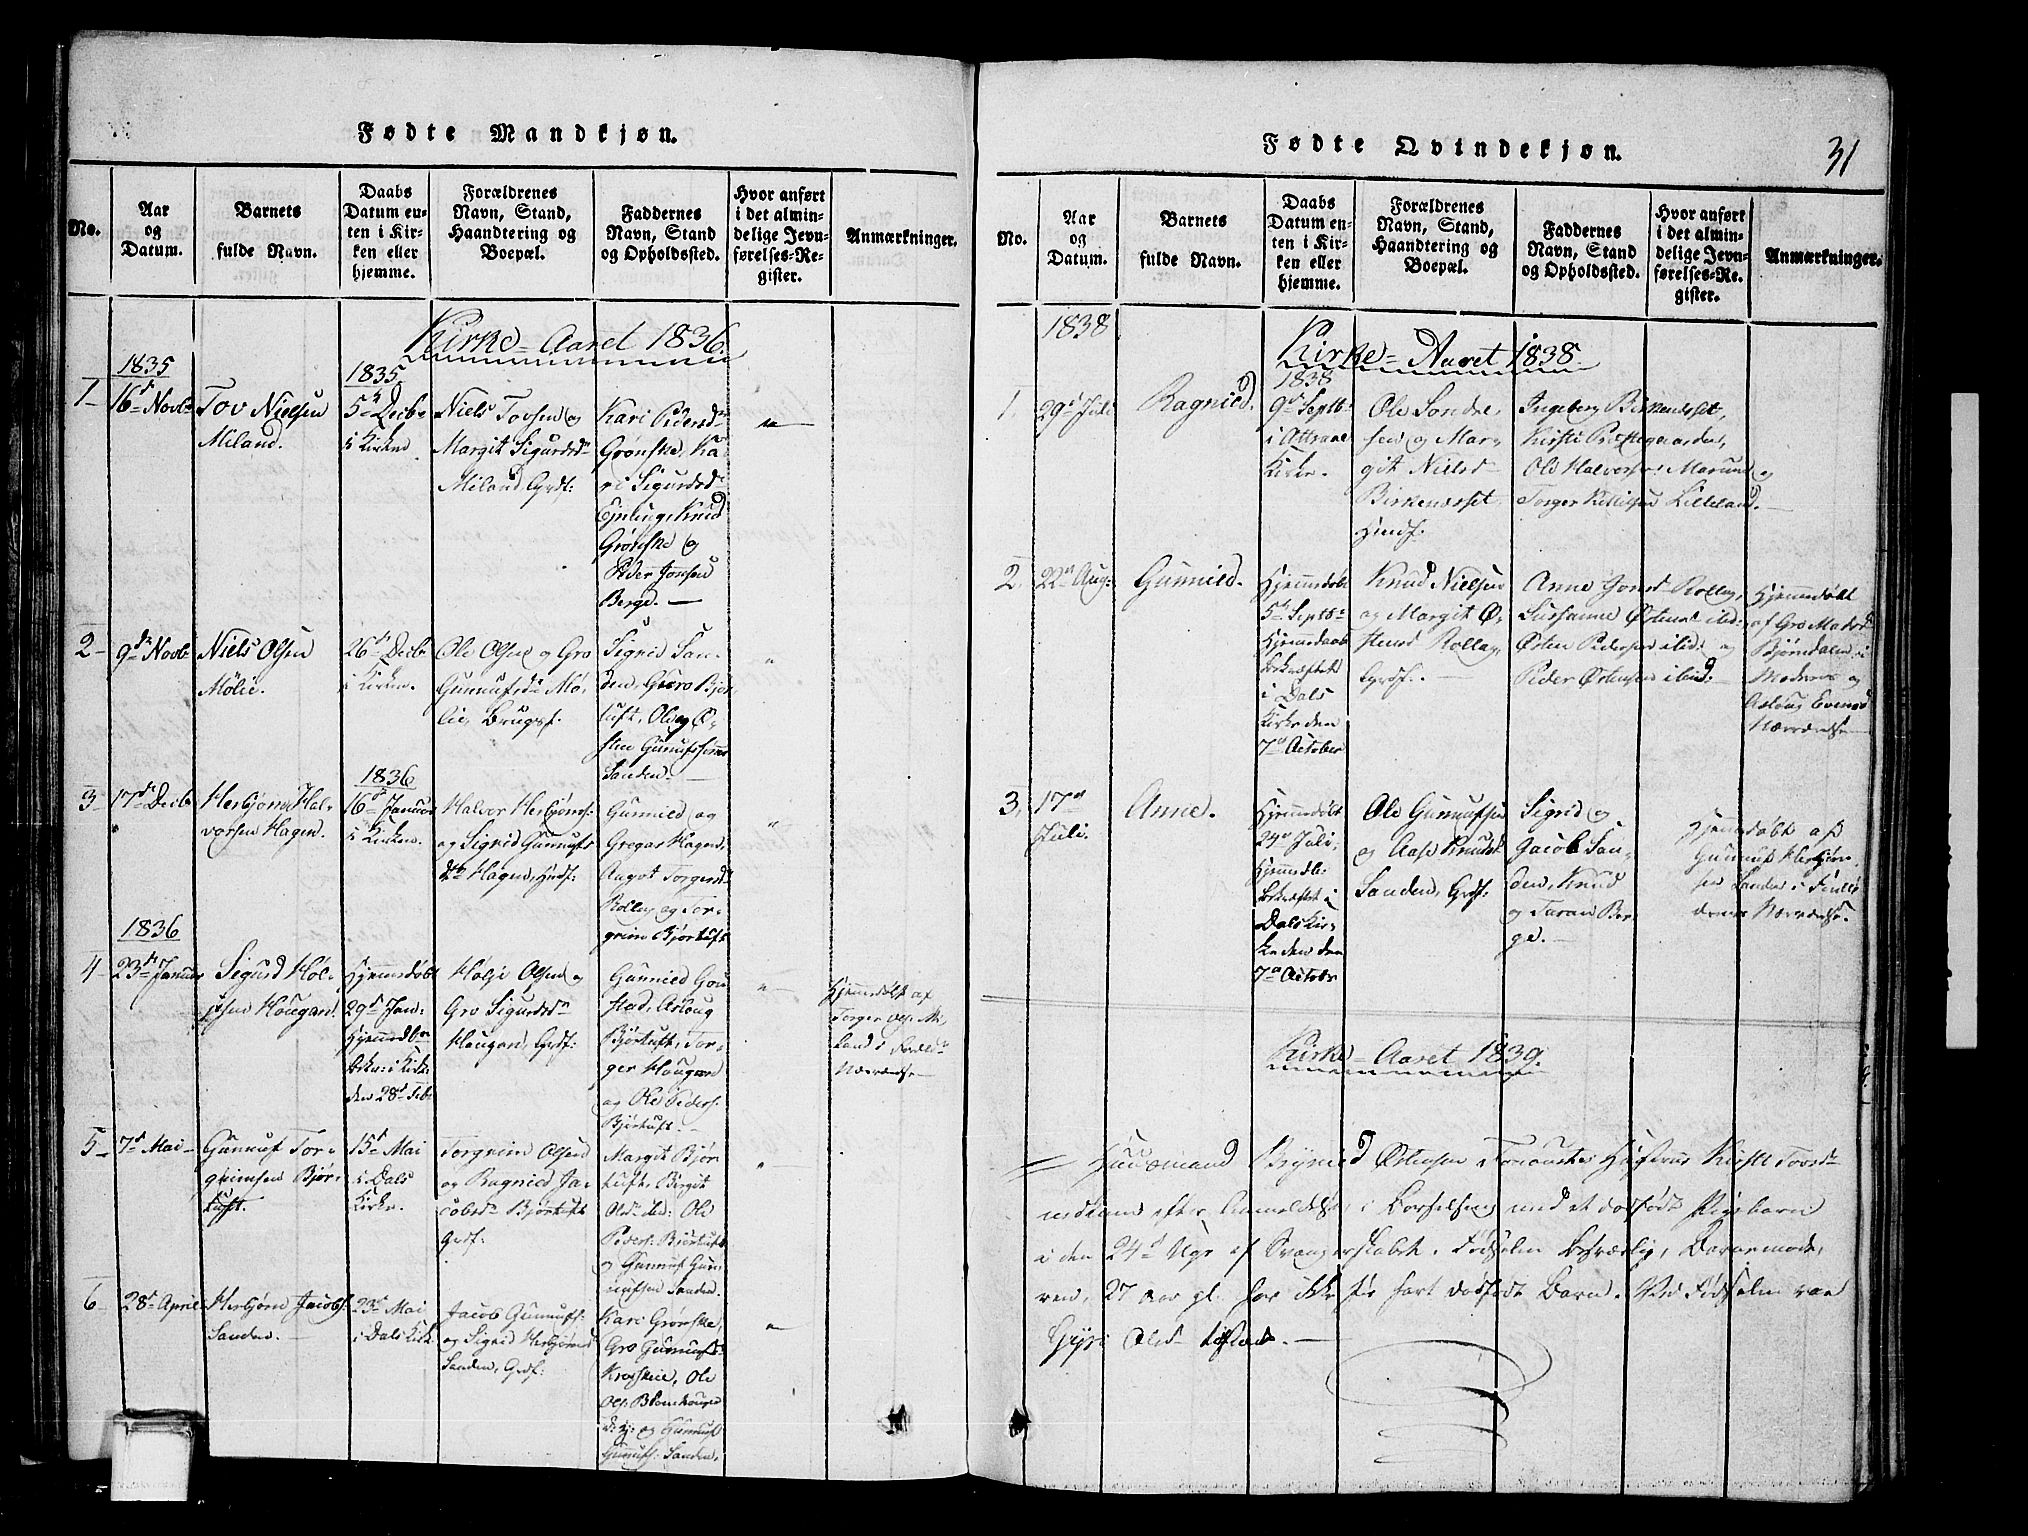 Fødte Mandkjøn.
No.
Aar
og
Datum.
Barnets
fulde Navn.
Daabs
Datum en-
ten i Kir-
ken eller
hjemme.
Forældrenes
Navn, Stand,
Haandtering og
Boepæl.
Faddernes
Navn, Stand
og Opholdssted.
Hvor anført
i det almin-
delige Jevn-
førelses-Re-
gister.
Anmærkninger.
Kirke-Aaret 1836.
1
1835
16d Novb
Tov Nielsen
Miland.
1835
5d Decbr
i Kirken
Niels Tovsen og
Margit Sigurdsd
Miland, Grdf:
Kari Pedersd
Grønskei, Ka-
ri Sigurdsd
Knud
Grønskei og
Peder Jonsen
Berge.
2
9d Novb
Niels Olsen
Mølie.
26d Decb
i Kirken.
Ole Olsen og Gro
Gunnufsdr Mø-
lie, Brugsf.
Sigrid San-
den, Guro Bjør-
tuft, Ole og Ø-
sten Gunufssønner
Sanden.
3
17d Decb
Herbjørn Hal-
vorsen Hagen.
1836
16d Januar
i Kirken.
Halvor Herbjørns:
og Sigrid Gunnufs
dr Hagen, Husf:
Gunnild og
Gregar Hagen,
Aagot Torgersd
Rollag og Tor-
grim Bjørtuft
4
1836
23d Januar
Sigurd Høl-
jesen Hougan.
Hjemmedøbt
29d Jan:
Hjemmedbn
bekr: i Kirk:
den 28d Feb:
Hølje Olsen og
Gro Sigurdsd
Hougan, Grdf:
Gunnild
Aslaug
Bjørtuft, Tor-
ger Hougan
og Ole Peders:
Bjørtuft.
Hjemmedøbt af
Torger Ols: Mi-
land i Foreld:
Nærværelse
5
7d Mai
Gunnuf Tor-
grimsen Bjør-
tuft.
15d Mai
i Dals
Kirke.
Torgrim Olsen
og Ragnild Ja-
cobsd Bjørtuft
Grdf:
Margit Bjør-
tuft, Birgit
Olsd ibid: Ole
Peders: Bjørtuft
og Gunnuf Gun-
nufsen Sanden.
6
28d April
Herbjørn Jacobs:
Sanden.
23d Mai
i Dals Kirk
Jacob Gunnufs:
og Sigrid Herbjørnsd
Sanden, Grdf:
Kari Grønskei,
Gro Gunnufsd
Krosskie, Ole
Ols: Blomhougen
og Gunnuf
Gunnufs: Sanden.
Fødte Qvindekjøn.
31
No.
Aar
og
Datum.
Barnets
fulde Navn.
Daabs
Datum en-
ten i Kir-
ken eller
hjemme.
Forældrenes
Navn, Stand,
Haandtering og
Boepæl.
Faddernes
Navn, Stand
og Opholdssted.
Hvor anført
i det almin-
delige Jevn-
førelses-Re-
gister.
Anmærkninger.
1838
Kirke-Aaret 1838.
1.
29d Juli
Ragnild.
1838
9d Septb:
i Attraae
Kirke.
Ole Sondre-
sen og Mar-
git Nielsd
Birkenæsset
Husf.
Ingeborg Birkenæsset,
Kirsti Prestegaarden,
Ole Halvorsen Marum og
Torger Kittilsen Lilleland.
2.
22d Aug:
Gunnild.
Hjemmedøbt
5d Septb
Hjemmedaab
bekræftet
i Dals
Kirke den
7d October
Knud Nielsen
og Margit Ø-
stensd Rollag,
Grdf:
Anne Jonsd Rollag,
Sussanne Østensd ibid:
Østen Pedersen ibid: og
Peder Østensen ibid:
Hjemmedøbt
af Gro Madsd
Bjørndalen i
Moderens og
Aslaug Evensd
Nærværelse
3.
17d
Juli.
Anne.
Hjemmedøbt
24d Juli,
Hjemmedb:
bekræftet i
Dals Kir-
ke den
7d Octobr
Ole Gunnufsen
og Aase Knudsd
Sanden, Grdf:
Sigrid og
Jacob San-
den, Knud
og Taran Ber-
ge.
Hjemmedøbt af
Gunnuf Herbjørn-
sen Sanden i Forel-
drenes Nærværelse.
Kirke-Aaret 1839.
Huusmand Brynild Østensen Hustrue Kirsti Tovsd
nedkom efter Anmeldelse, i Barselseng med et dødfødt Pigebarn
i den 24d Uge af Svangerskabet. Fødselen besværlig, Barnemode-
ren, 27 Aar gl. har ikke før havt dødfødt Barn. Ved Fødselen var
Gyri Olsd tilstæde.